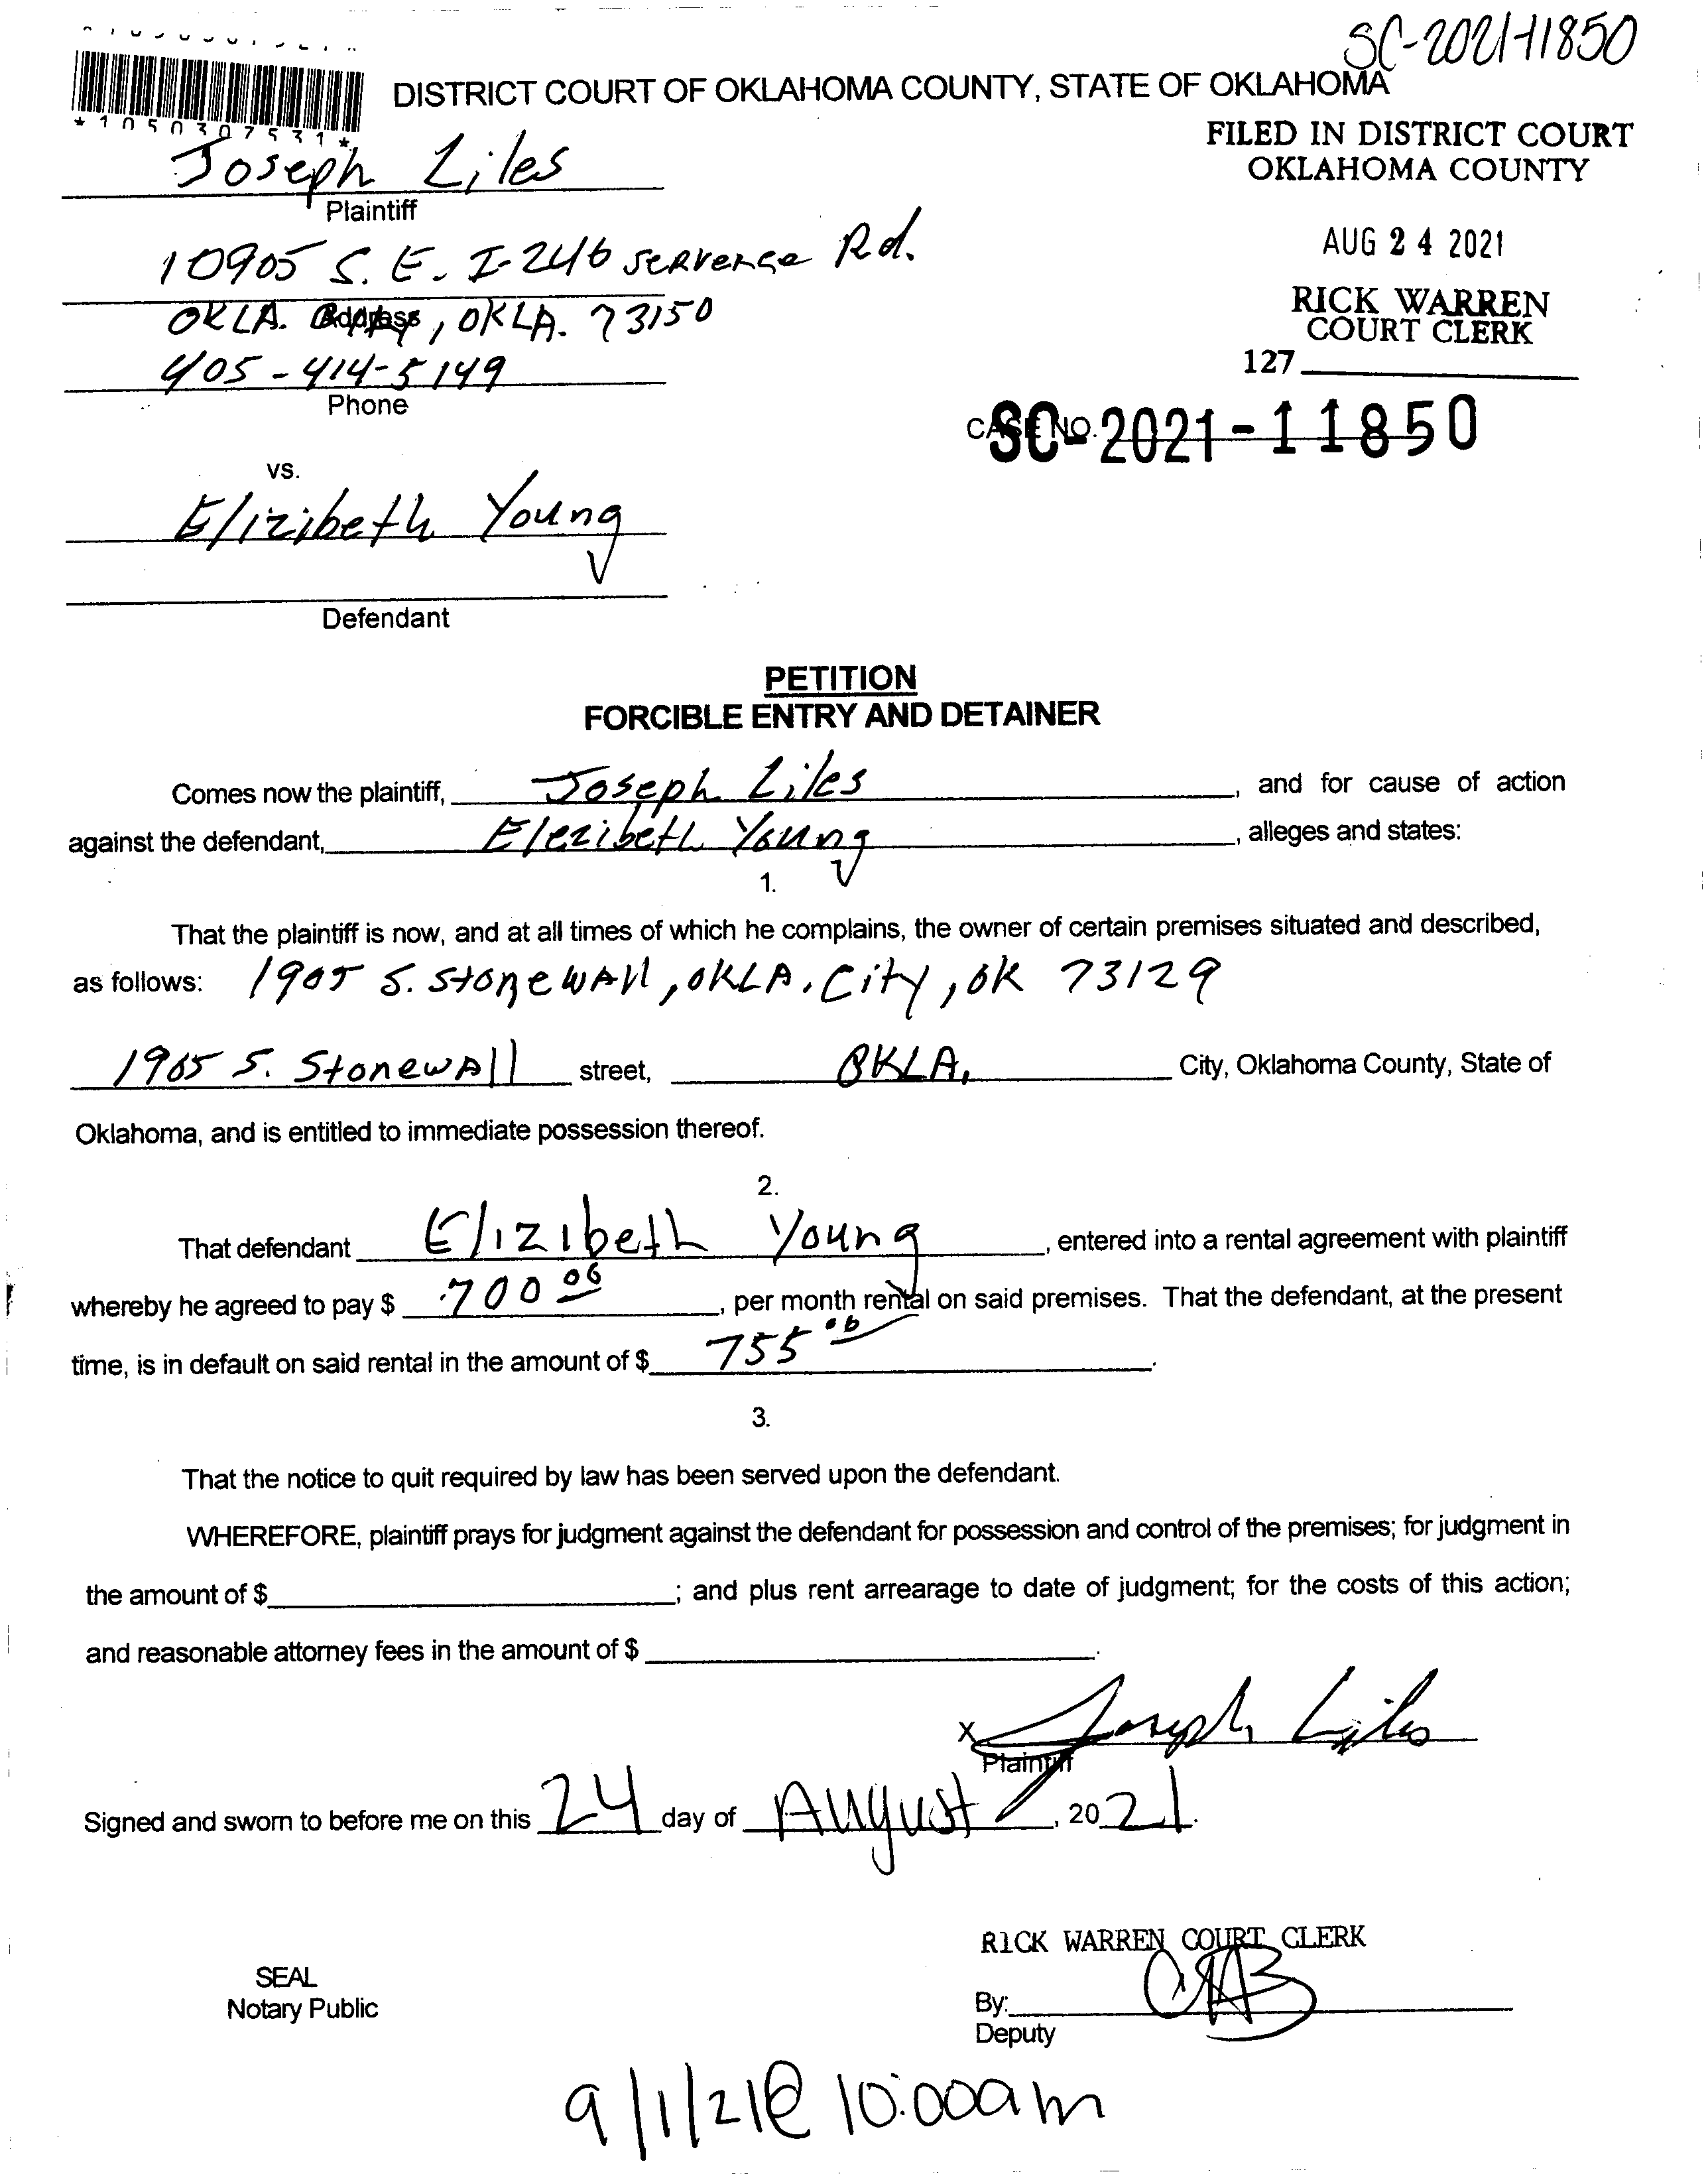 SC-2021-11850
*1050307531*
DISTRICT COURT OF OKLAHOMA COUNTY, STATE OF OKLAHOMA
FILED IN DISTRICT COURT
OKLAHOMA COUNTY
Joseph Liles
Plaintiff
AUG 24 2021
10905 S. E. I-240 Rd.
RICK WARREN
COURT CLERK
OKLA. , OKLA. 73150
Address
127
405-414-5149
Phone
CASE NO. SC-2021-11850
vs.
Elizibeth Young
Defendant
PETITION
FORCIBLE ENTRY AND DETAINER
Comes now the plaintiff, Joseph Liles, and for cause of action
against the defendant, Elezibeth Young, alleges and states:
1.
That the plaintiff is now, and at all times of which he complains, the owner of certain premises situated and described,
as follows: 1905 S. Stonewall, OKLA. City, OK 73129
1905 S. Stonewall street, OKLA. City, Oklahoma County, State of
Oklahoma, and is entitled to immediate possession thereof.
2.
That defendant Elizibeth Young, entered into a rental agreement with plaintiff
whereby he agreed to pay $ 700 00, per month rental on said premises. That the defendant, at the present
time, is in default on said rental in the amount of $ 755 00.
3.
That the notice to quit required by law has been served upon the defendant.
WHEREFORE, plaintiff prays for judgment against the defendant for possession and control of the premises; for judgment in
the amount of $ ; and plus rent arrearage to date of judgment; for the costs of this action;
and reasonable attorney fees in the amount of $ .
X Joseph Liles
Plaintiff
Signed and sworn to before me on this 24 day of August, 2021.
RICK WARREN COURT CLERK
SEAL
Notary Public
By:
Deputy
9/1/21@ 10:00am